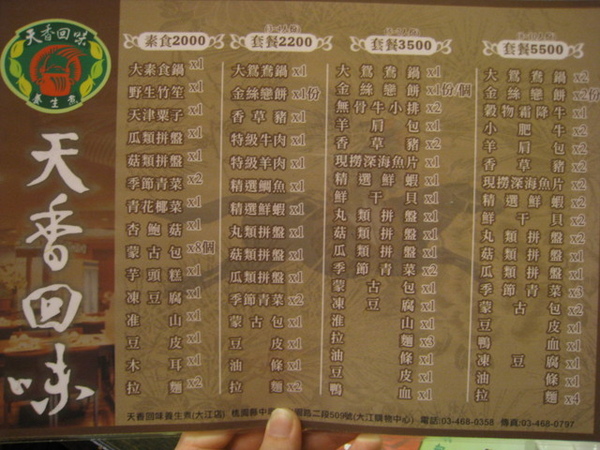 天香回味
養生煮
天香回味
素食2000
大素食鍋 x1
野生竹笙 x1
天津粟子 x1
瓜類拼盤 x1
菇類拼盤 x1
季節青菜 x2
青花椰菜 x1
杏鮑菇 x1
蒙古包 x8個
芋頭糕 x1
凍豆腐 x1
淮山 x1
豆皮 x1
木耳 x1
拉麵 x2
套餐2200
大鴛鴦鍋 x1
金絲戀餅 x1份
香草豬 x1
特級牛肉 x1
特級羊肉 x1
精選鯛魚 x1
精選鮮蝦 x1
丸類拼盤 x1
菇類拼盤 x1
瓜類拼盤 x1
季節青菜 x2
蒙古包 x1
豆皮 x1
油條 x1
拉麵 x2
套餐3500
大鴛鴦鍋 x1
金絲戀餅 x1份/個
無骨牛小排 x2
羊肩包 x1
香草豬 x2
現撈深海魚片 x1
精選鮮蝦 x1
鮮干貝 x1
丸類拼盤 x1
菇類拼盤 x1
瓜類拼盤 x1
季節青菜 x2
蒙古包 x1
凍豆腐 x1
淮山 x1
拉麵 x3
油條 x1
豆皮 x1
鴨血 x1
套餐5500
大鴛鴦鍋 x2
金絲戀餅 x2份
穀物霜降牛 x1
小肥牛 x2
羊肩包 x2
香草豬 x2
現撈深海魚片 x2
精選鮮蝦 x2
鮮干貝 x2
丸類拼盤 x2
菇類拼盤 x1
瓜類拼盤 x1
季節青菜 x3
蒙古包 x2
豆皮 x1
鴨血 x1
凍豆腐 x1
油條 x1
拉麵 x4
天香回味養生煮(大江店) 桃園縣中 路二段509號(大江購物中心) 電話:03-468-0358 傳真:03-468-0797